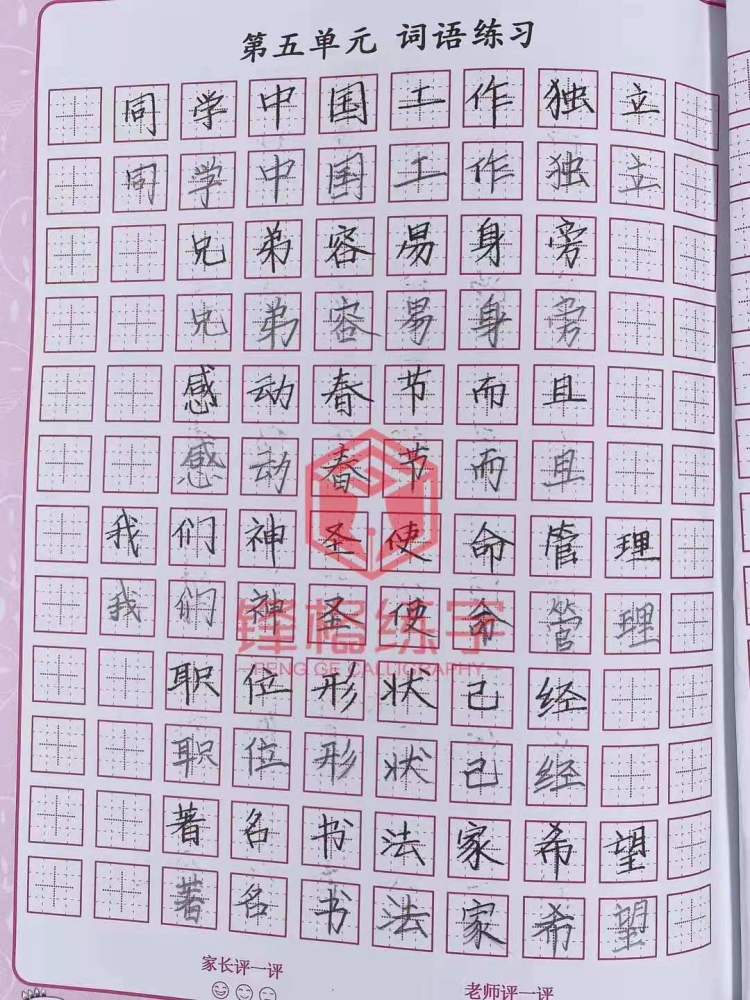 第五单元 词语练习
同学中国工作独立
同学中国工作独立
兄弟容易身旁
兄弟容易身旁
感动春节而且
感动春节而且
我们神圣使命管理
我们神圣使命管理
锋格练字
FENG GE CALLIGRAPHY
职位形状已经
职位形状已经
著名书法家希望
著名书法家希望
家长评一评
老师评一评